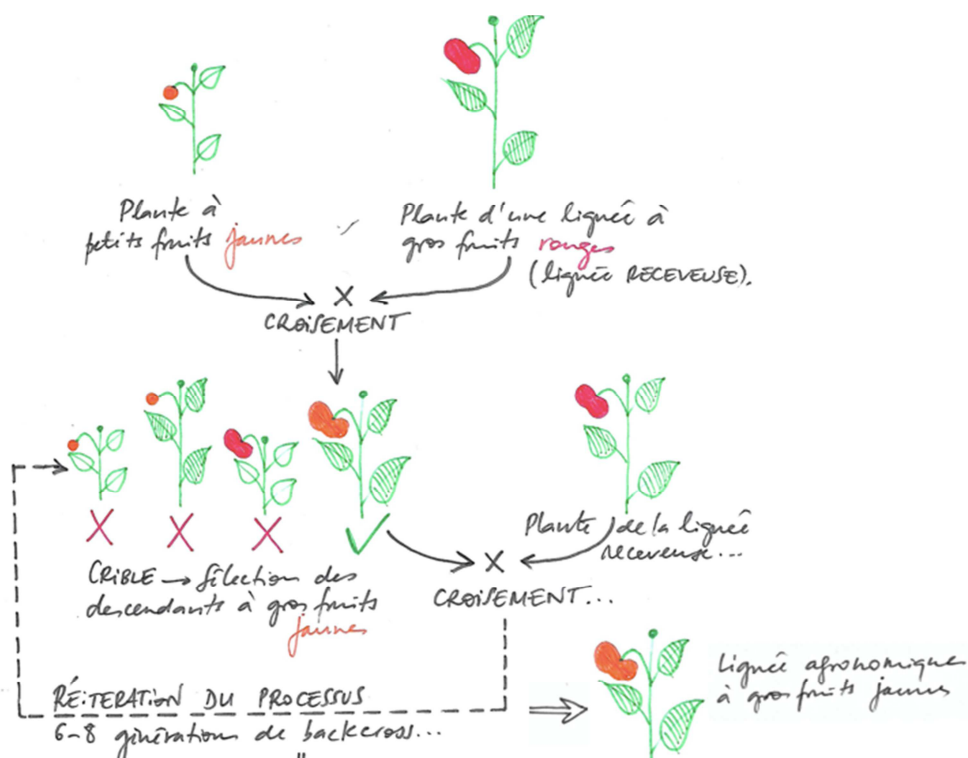 Plante à
petits fruits jaunes
Plante d'une lignée à
gros fruits rouges
(lignée RECEVEUSE).
X
CROISEMENT
Plante de la lignée
receveuse...
X
CROISEMENT...
CRIBLE → Sélection des
descendants à gros fruits
jaunes
RÉITERATION DU PROCESSUS
6-8 générations de backcross...
Lignée agronomique
à gros fruits jaunes